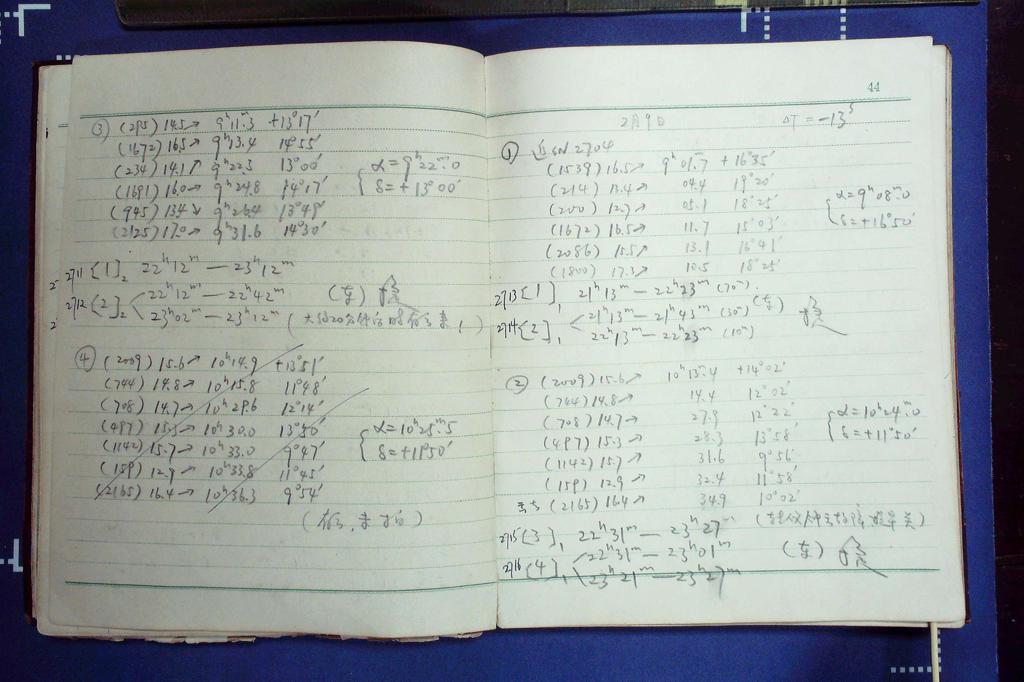 ③ (295) 14.5↗ 9ʰ11ᵐ.3 +13°17′
(1672) 16.5↗ 9ʰ13.4 14°55′
(234) 14.1↗ 9ʰ22.5 13°00′
(1691) 16.0↗ 9ʰ24.8 14°17′
(945) 13.4↘ 9ʰ26.4 13°49′
(2125) 17.0↗ 9ʰ31.6 14°30′
α=9ʰ22ᵐ.0
δ=+13°00′
2711 [1]₂ 22ʰ12ᵐ—23ʰ12ᵐ
2712 [2]₂ 22ʰ12ᵐ—22ʰ42ᵐ
23ʰ02ᵐ—23ʰ12ᵐ
(东)
④ (2009) 15.6↗ 10ʰ14.9 +13°51′
(744) 14.8↗ 10ʰ15.8 11°48′
(708) 14.7↗ 10ʰ29.6 12°14′
(497) 15.3↗ 10ʰ30.0 13°50′
(1142) 15.7↗ 10ʰ33.0 9°47′
(159) 12.9↗ 10ʰ33.8 11°45′
(2165) 16.4→ 10ʰ36.3 9°54′
α=10ʰ25ᵐ.5
δ=+11°50′
44
2月9日 ΔT=-13ˢ
① 近SN2704
(1539) 16.5↗ 9ʰ01ᵐ.7 +16°35′
(214) 13.4↗ 04.4 19°20′
(200) 12.7↗ 05.1 18°25′
(1672) 16.5↗ 11.7 15°03′
(2086) 15.5↗ 13.1 16°41′
(1800) 17.3↗ 10.5 18°25′
α=9ʰ08ᵐ.0
δ=+16°50′
2713 [1]₁ 21ʰ13ᵐ—22ʰ23ᵐ (70ᵐ)
2714 [2]₁ 21ʰ13ᵐ—21ʰ43ᵐ (30ᵐ)
22ʰ13ᵐ—22ʰ23ᵐ (10ᵐ)
(东)
② (2009) 15.6↗ 10ʰ13ᵐ.4 +14°02′
(744) 14.8↗ 14.4 12°02′
(708) 14.7↗ 27.9 12°22′
(497) 15.3↗ 28.3 13°58′
(1142) 15.7↗ 31.6 9°56′
(159) 12.9↗ 32.4 11°58′
(2165) 16.4↗ 34.9 10°02′
α=10ʰ24ᵐ.0
δ=+11°50′
2715 [3]₁ 22ʰ31ᵐ—23ʰ27ᵐ
2716 [4]₁ 22ʰ31ᵐ—23ʰ01ᵐ
23ʰ21ᵐ—23ʰ27ᵐ
(东)